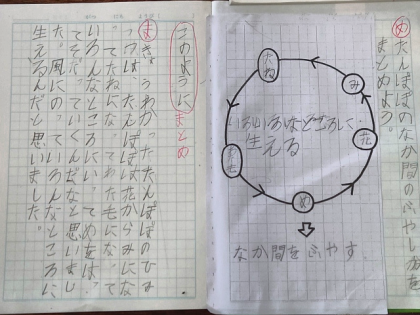 め たんぽぽのなか間のふやし方を
まとめよう。
たね
み
花
め
わた毛
いろいろなところに
生える
なか間をふやす
このように まとめ
ま きょうわかったたんぽぽのひみ
つは、たんぽぽは花からみにな
ってたねになってわた毛になって
いろんなところにいってめをは
ってそだっていくんだなと思いまし
た。風にのっていろんなところに
生えるんだと思いました。